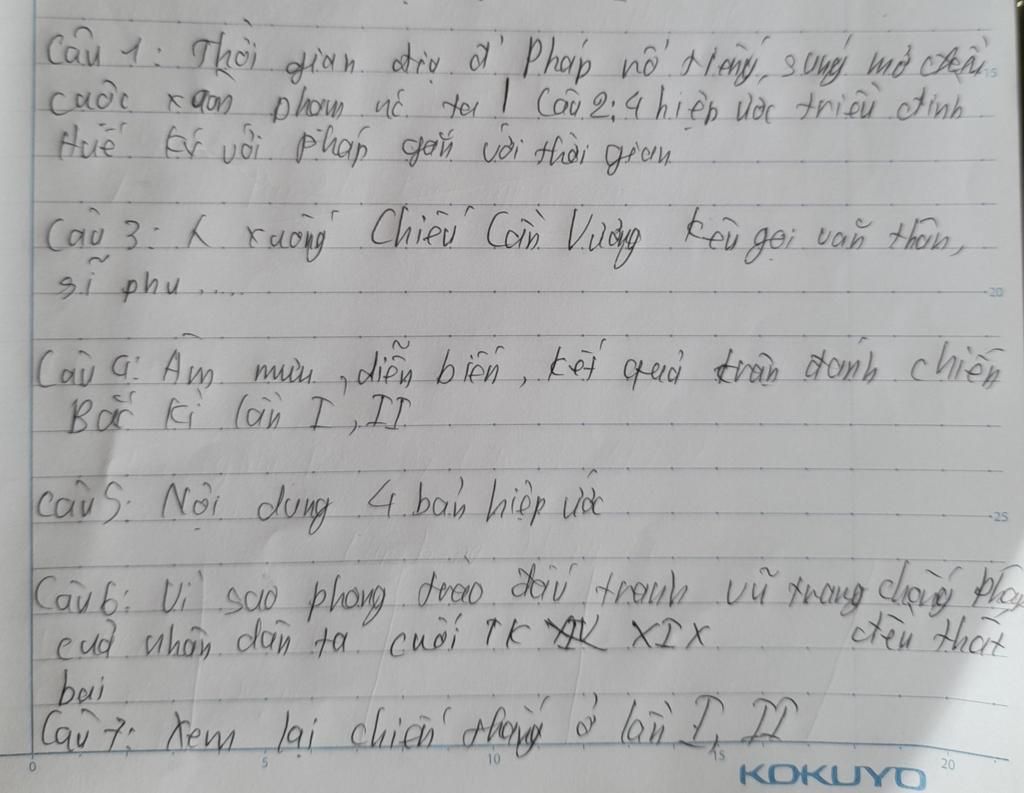 Câu 1: Thời gian địa đ' Pháp nổ tiếng súng mở đầu
cuộc xâm phạm nc ta! Câu 2: 4 hiệp ước triều đình
Huế kí với Pháp gắn với thời gian
Câu 3: xuống Chiếu Cần Vương kêu gọi văn thân,
sĩ phu.....
Câu 4: Âm mưu, diễn biến, kết quả trận đánh chiến
Bắc Kì lần I, II
Câu 5: Nội dung 4 bản hiệp ước
Câu 6: Vì sao phong trào đấu tranh vũ trang chống Pháp
của nhân dân ta cuối TK XIX đều thất
bại
Câu 7: Xem lại chiến thắng ở lần I, II
15
20
25
0 5 10 15 20
KOKUYO